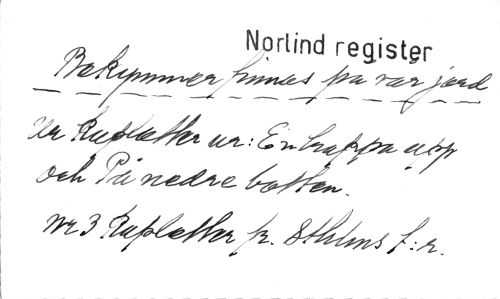 Norlind register
Bekymmer finnas på vår jord
Ur Kupletter ur: En trappa upp
och På nedre botten.
nr 3 Kupletter fr. Sthlms f:r.